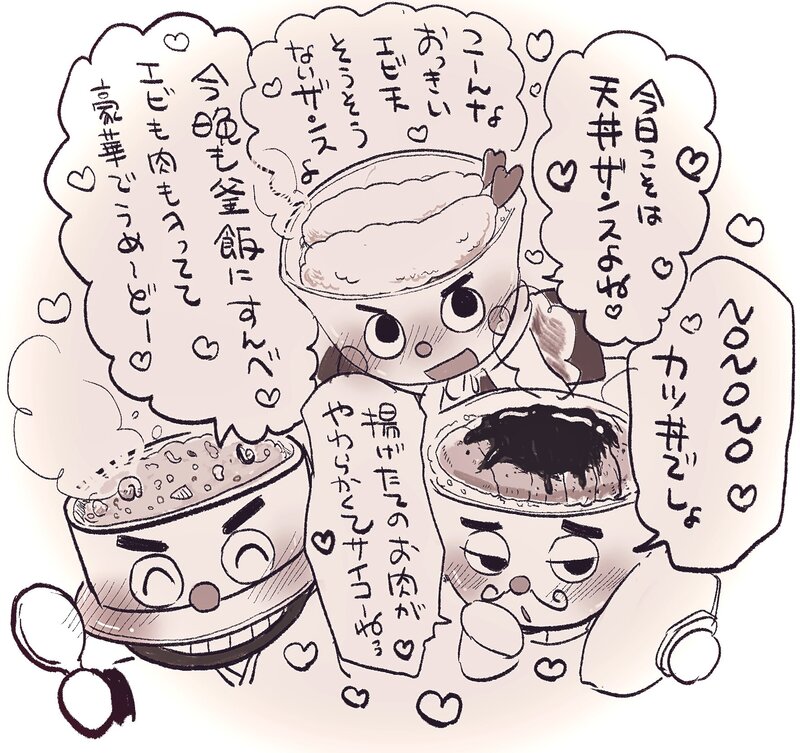 今日こそは
天丼ザンスよね♡
こーんな
おっきい
エビ天
そうそう
ないザンスよ
今晩も釜飯にすんべ♡
エビも肉も入ってて
豪華でうめ〜どー
NONONO
カツ丼でしょ
揚げたてのお肉が
やわらかくてサイコーねぅ